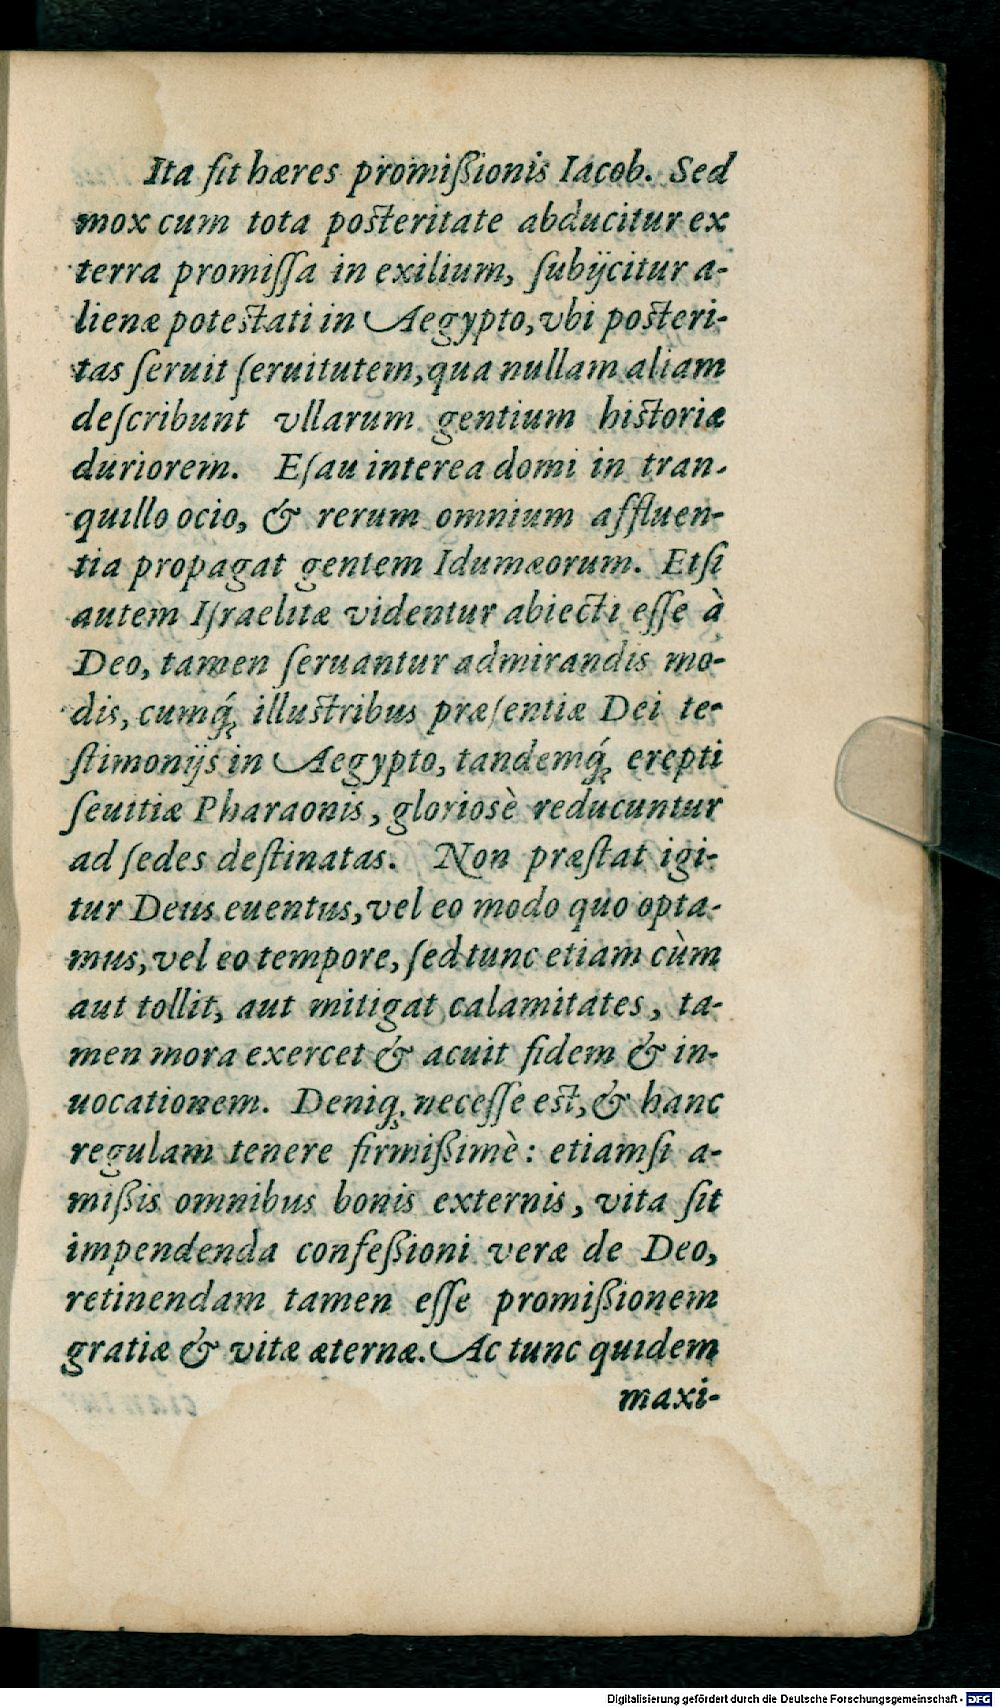 Ita fit hæres promißionis Iacob. Sed
mox cum tota posteritate abducitur ex
terra promiſſa in exilium, ſubijcitur a-
lienæ potestati in Aegypto, vbi posteri-
tas ſeruit ſeruitutem, qua nullam aliam
deſcribunt vllarum gentium historiæ
duriorem. Eſau interea domi in tran-
quillo ocio, & rerum omnium affluen-
tia propagat gentem Idumæorum. Etſi
autem Iſraelitæ videntur abiecti eſſe à
Deo, tamen ſeruantur admirandis mo-
dis, cumq́; illustribus præſentiæ Dei te-
ſtimonijs in Aegypto, tandemq́; erepti
ſeuitiæ Pharaonis, gloriosè reducuntur
ad ſedes deſtinatas. Non præſtat igi-
tur Deus euentus, vel eo modo quo opta-
mus, vel eo tempore, ſed tunc etiam cùm
aut tollit, aut mitigat calamitates, ta-
men mora exercet & acuit fidem & in-
uocationem. Deniq; neceſſe est, & hanc
regulam tenere firmißimè: etiamſi a-
mißis omnibus bonis externis, vita ſit
impendenda confeßioni veræ de Deo,
retinendam tamen eſſe promißionem
gratiæ & vitæ æternæ. Ac tunc quidem
maxi-
Digitalisierung gefördert durch die Deutsche Forschungsgemeinschaft - DFG